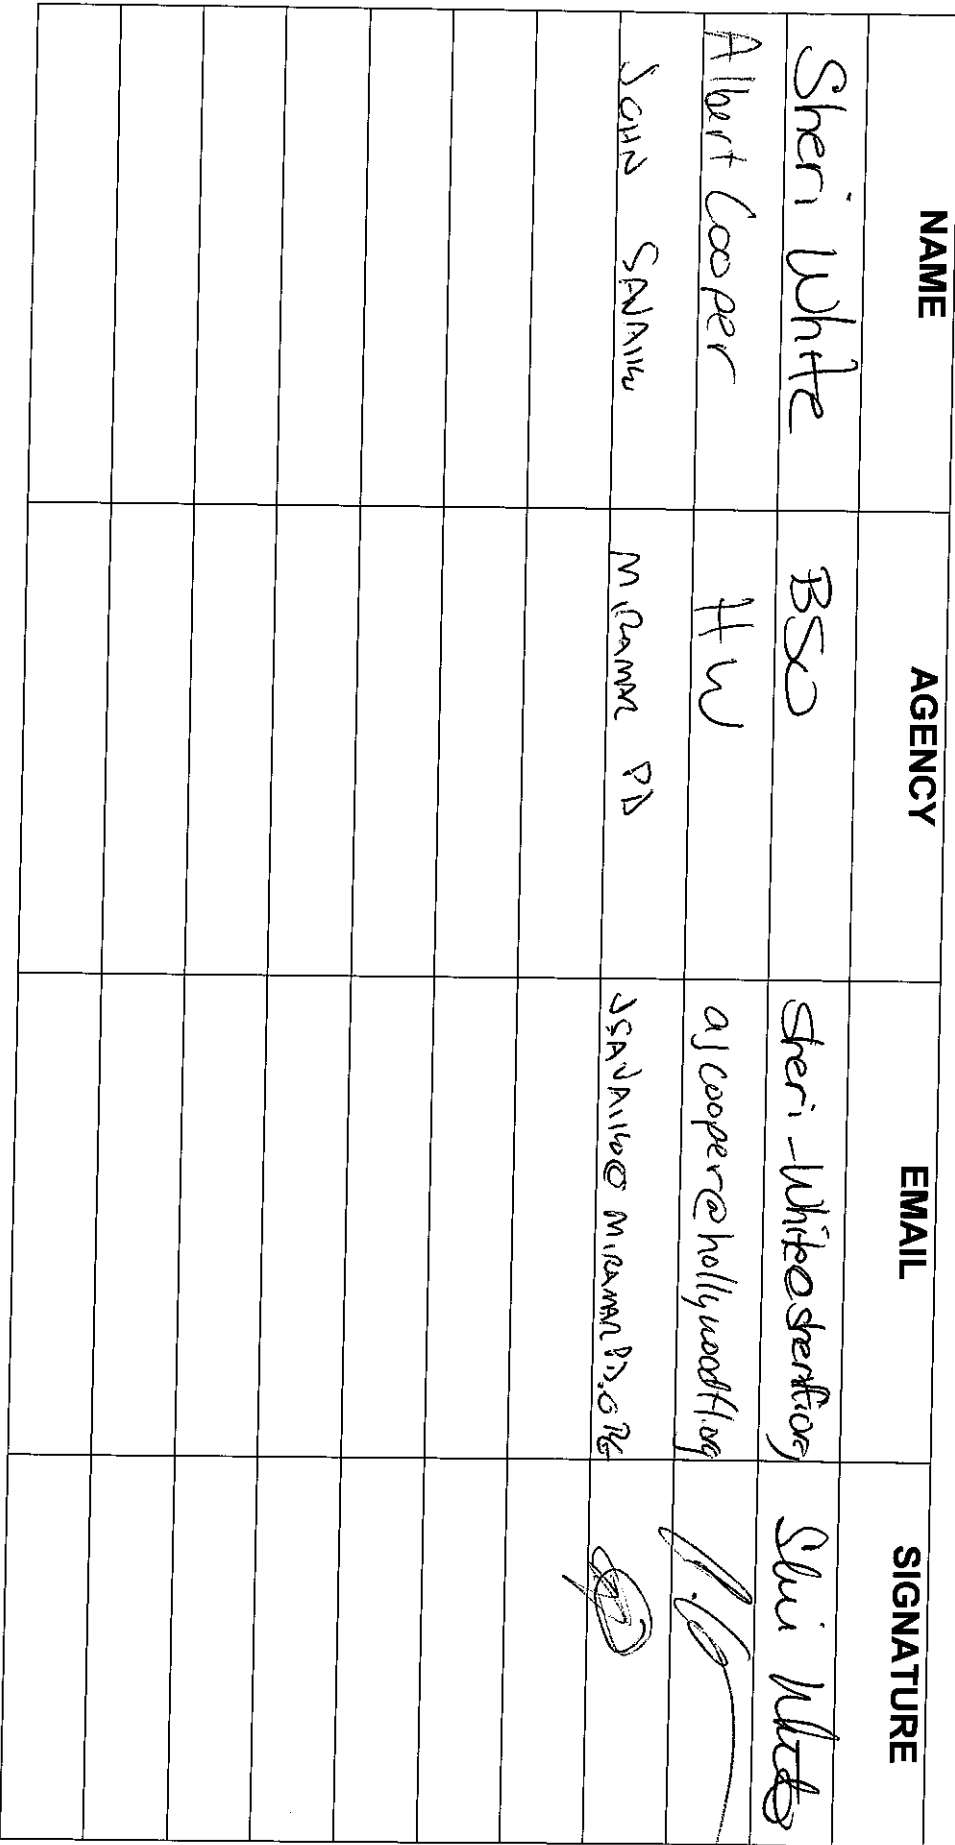 NAME AGENCY EMAIL SIGNATURE
Sheri White BSO Sheri_White@sheriff.org Sheri White
Albert Cooper HW ajcooper@hollywoodfl.org
JOHN MIRAMAR PD